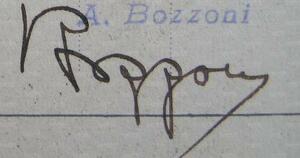 A. Bozzoni
Bozzoni